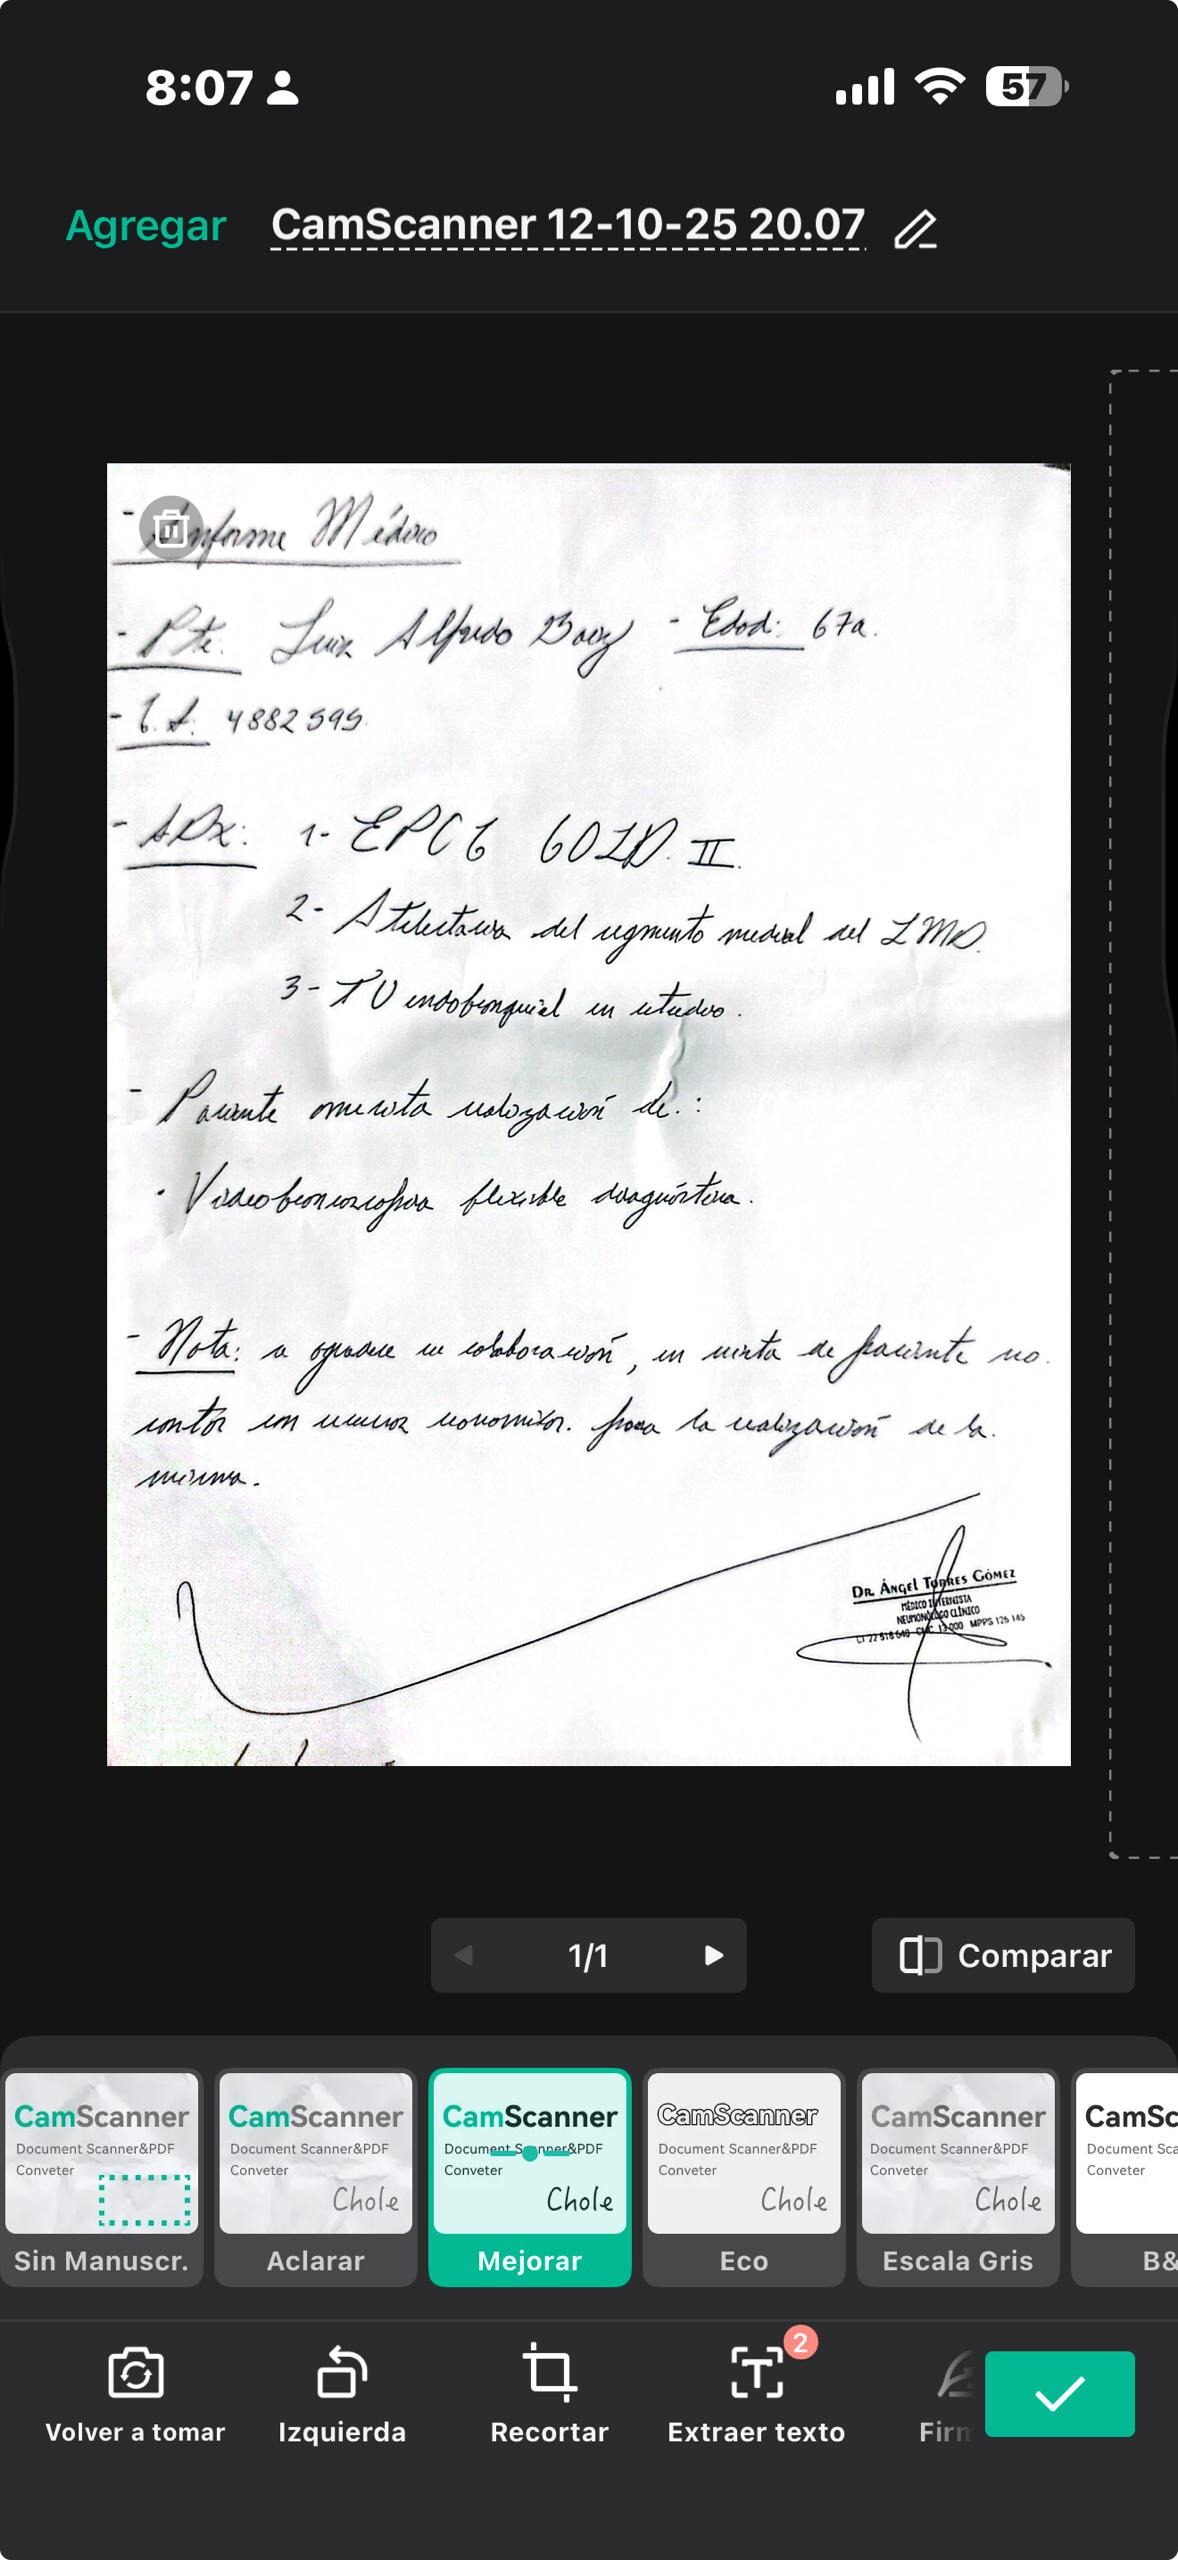 8:07
57
Agregar CamScanner 12-10-25 20.07
- Informe Médico
- Pte: Luis Alfredo Baez - Edad: 67a.
- C.I. 4882595
- IDx: 1- EPOC GOLD II.
2- Atelectasia del segmento medial del LMD.
3- TU endobronquial en estudio.
- Paciente amerita realización de:
· Videobroncoscopia flexible diagnóstica.
- Nota: se agradece su colaboración, en vista de paciente no
contar con recursos economicos. para la realización de la
misma.
DR. ÁNGEL TORRES GÓMEZ
MÉDICO INTERNISTA
NEUMONÓLOGO CLÍNICO
CMC 13000 MPPS 125 145
1/1
Comparar
CamScanner CamScanner CamScanner CamScanner CamScanner CamSc
Document Scanner&PDF Document Scanner&PDF Document Scanner&PDF Document Scanner&PDF Document Scanner&PDF Document Sca
Conveter Conveter Conveter Conveter Conveter Conveter
Chole Chole Chole Chole
Sin Manuscr. Aclarar Mejorar Eco Escala Gris B&
2
Volver a tomar Izquierda Recortar Extraer texto Firm